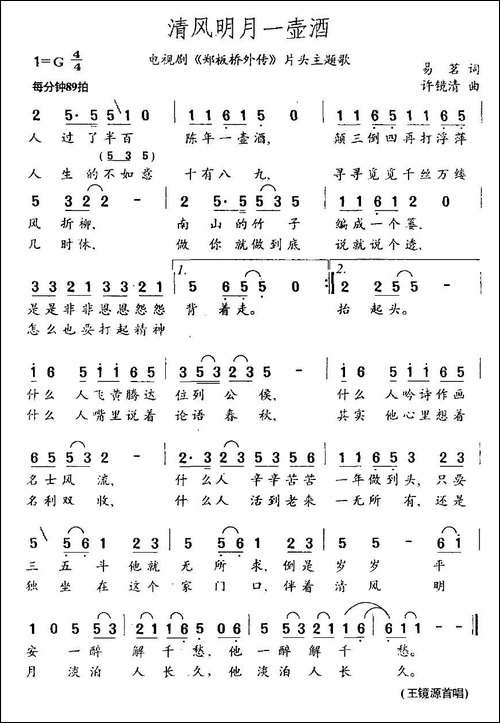 清风明月一壶酒
1=G 4/4
电视剧《郑板桥外传》片头主题歌
易茗 词
每分钟89拍
许镜清 曲
2 5·5 5 1 0 | 1 1 6 1 5 0 | 1 1 6 1 1 6 5 5 |
人 过了半百 陈年一壶酒, 颠三倒四再打浮萍
(5 3 5)
人 生的不如意 十有八九, 寻寻觅觅千丝万缕
5 3 2 2 - | 2 5·5 5 3 5 | 1 1 6 1 2 0 |
风折柳, 南山的竹子 编成一个篓,
几时休, 做你就做到底 说就说个透,
3 3 2 1 3 3 2 1 | 1. 5 6 5 5 - :| 2. 2 2 5 5 - |
是是非非恩恩怨怨 背着走。 抬起头。
怎么也要打起精神
1 6 5 1 1 6 5 | 3 5 5 3 2 3 - | 1 6 5 1 1 6 5 |
什么人飞黄腾达 位列公侯, 什么人吟诗作画
什么人嘴里说着 论语春秋, 其实他心里想着
6 5 5 3 2 - | 2·3 2 5 5 3 2 | 1 1 6 1 2 2 3 |
名士风流, 什么人辛辛苦苦 一年做到头,只要
名利双收, 什么人活到老来 一无所有,还是
5 5 6 1 2 3 | 5 5 3 2 2 3 | 5 5 - 6 1 |
三五斗他就 无所求,倒是 岁岁平
独坐在这个 家门口,伴着 清风明
1 0 5 5 3 | 2 1 1 6 5 6 1 | 2 1 1 6 1 - | 1 - - - ||
安一醉 解千愁,他一醉 解千愁。
月淡泊 人长久,他淡泊 人长久。
(王镜源首唱)